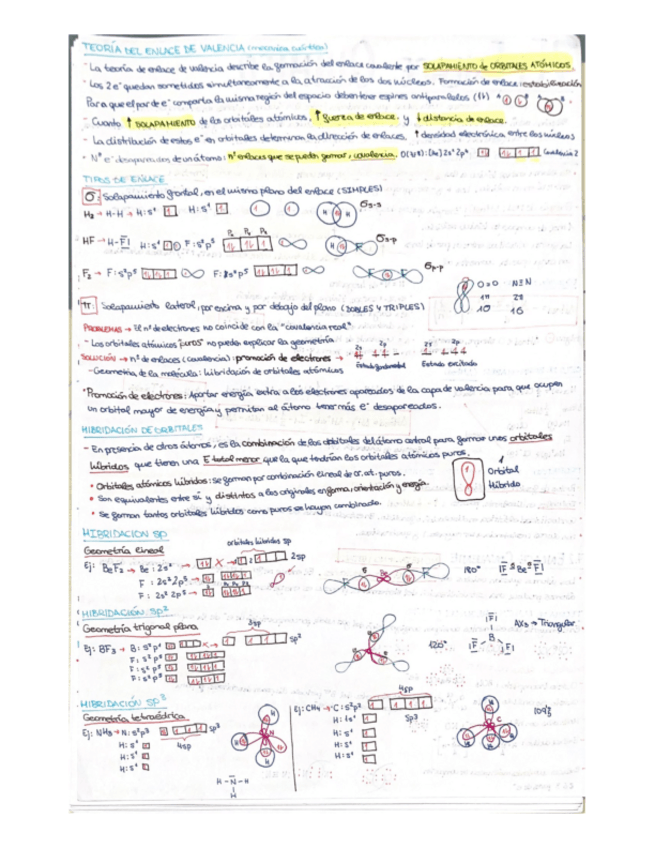 TEORÍA DEL ENLACE DE VALENCIA (mecánica cuántica)
- La teoría de enlace de valencia describe la formación del enlace covalente por SOLAPAMIENTO de ORBITALES ATÓMICOS.
- Los 2 e⁻ quedan sometidos simultáneamente a la atracción de los dos núcleos. Formación de enlace: estabilización
Para que el par de e⁻ comparta la misma región del espacio deben tener espines antiparalelos (1↓)
- Cuanto ↑ SOLAPAMIENTO de los orbitales atómicos, ↑ fuerza de enlace y ↓ distancia de enlace.
- La distribución de estos e⁻ en orbitales determinan la dirección de enlaces. ↑ densidad electrónica entre los núcleos
- Nº e⁻ desapareados de un átomo: nº enlaces que se pueden formar, covalencia. Covalencia 2
TIPOS DE ENLACE
σ: Solapamiento frontal, en el mismo plano del enlace (SIMPLES)
H₂ → H-H → H: s¹ H: s¹ σs-s
Px Py Pz
HF → H-F H: s¹ F: s²p⁵ σs-p
F₂ → F: s²p⁵ F: 2s²p⁵ σp-p
O=O N≡N
1π 2π
1σ 1σ
π: Solapamiento lateral, por encima y por debajo del plano (DOBLES Y TRIPLES)
PROBLEMAS → El nº de electrones no coincide con la "covalencia real"
- Los orbitales atómicos "puros" no puede explicar la geometría
SOLUCIÓN → nº de enlaces (covalencia): promoción de electrones → 2s 2p 2s 2p
- Geometría de la molécula: hibridación de orbitales atómicos Estado fundamental Estado excitado
*Promoción de electrones: Aportar energía extra a los electrones apareados de la capa de valencia para que ocupen
un orbital mayor de energía y permitan al átomo tener más e⁻ desapareados.
HIBRIDACIÓN DE ORBITALES
- En presencia de otros átomos, es la combinación de los orbitales del átomo central para formar unos orbitales
híbridos que tienen una E total menor que la que tendrían los orbitales atómicos puros.
• Orbitales atómicos híbridos: se forman por combinación lineal de or. at. puros.
• Son equivalentes entre sí y distintos a los originales en forma, orientación y energía.
• Se forman tantos orbitales híbridos como puros se hayan combinado.
1 Orbital Híbrido
HIBRIDACIÓN sp
Geometría lineal orbitales híbridos sp
Ej: BeF₂ → Be: 2s² → 2sp
F: 2s²2p⁵ → 180°
F: 2s²2p⁵ →
HIBRIDACIÓN sp²
Geometría trigonal plana 3sp AX₃ → Triangular
Ej: BF₃ → B: s²p¹ sp² 120°
F: s²p⁵
F: s²p⁵
F: s²p⁵
HIBRIDACIÓN sp³
Geometría tetraédrica
Ej: NH₃ → N: s²p³ sp³
4sp
H: s¹
H: s¹
H: s¹
H - N - H
H
4sp
Ej: CH₄ → C: s²p²
H: 1s¹ sp3
H: s¹
H: s¹
H: s¹